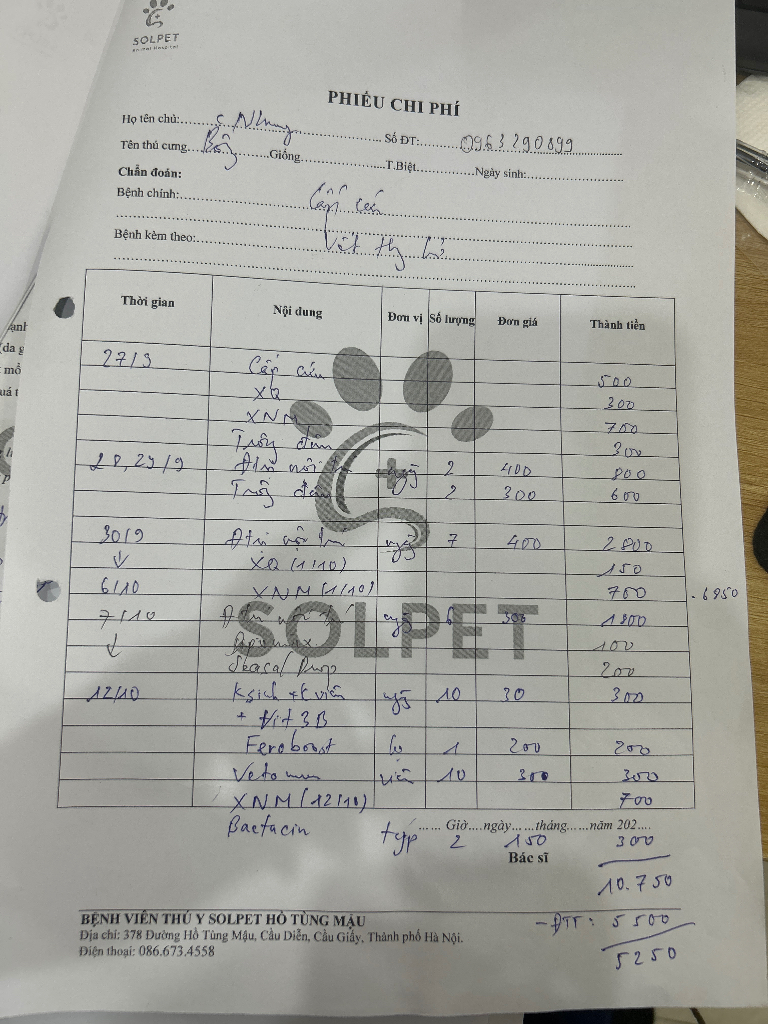 SOLPET
Animal Hospital
PHIẾU CHI PHÍ
Họ tên chủ: c Nhung Số ĐT: 0963290899
Tên thú cưng Bông Giống T.Biệt Ngày sinh:
Chẩn đoán:
Bệnh chính: Cấp cứu
Bệnh kèm theo: Vết th hở
Thời gian Nội dung Đơn vị Số lượng Đơn giá Thành tiền
27/9 Cấp cứu 500
XQ 300
XNM 700
Trông đêm 300
28, 29/9 Đtrị nội trú ngày 2 400 800
Trông đêm 2 300 600
30/9 Đtrị nội trú ngày 7 400 2800
↓ XQ (1/10) 150
6/10 XNM (1/10) 700 . 6850
7/10 Đtrị nội trú ngày 6 300 1800
↓ 100
200
12/10 Ksinh + viên ngày 10 30 300
+ Vit 3B
Feroboost lọ 1 200 200
viên 10 300 300
XNM (12/10) 700
Bactacin typ 2 150 300
...... Giờ....ngày......tháng......năm 202....
Bác sĩ
10.750
SOLPET
BỆNH VIỆN THÚ Y SOLPET HỒ TÙNG MẬU
- ĐTT: 5500
Địa chỉ: 378 Đường Hồ Tùng Mậu, Cầu Diễn, Cầu Giấy, Thành phố Hà Nội.
Điện thoại: 086.673.4558
5250